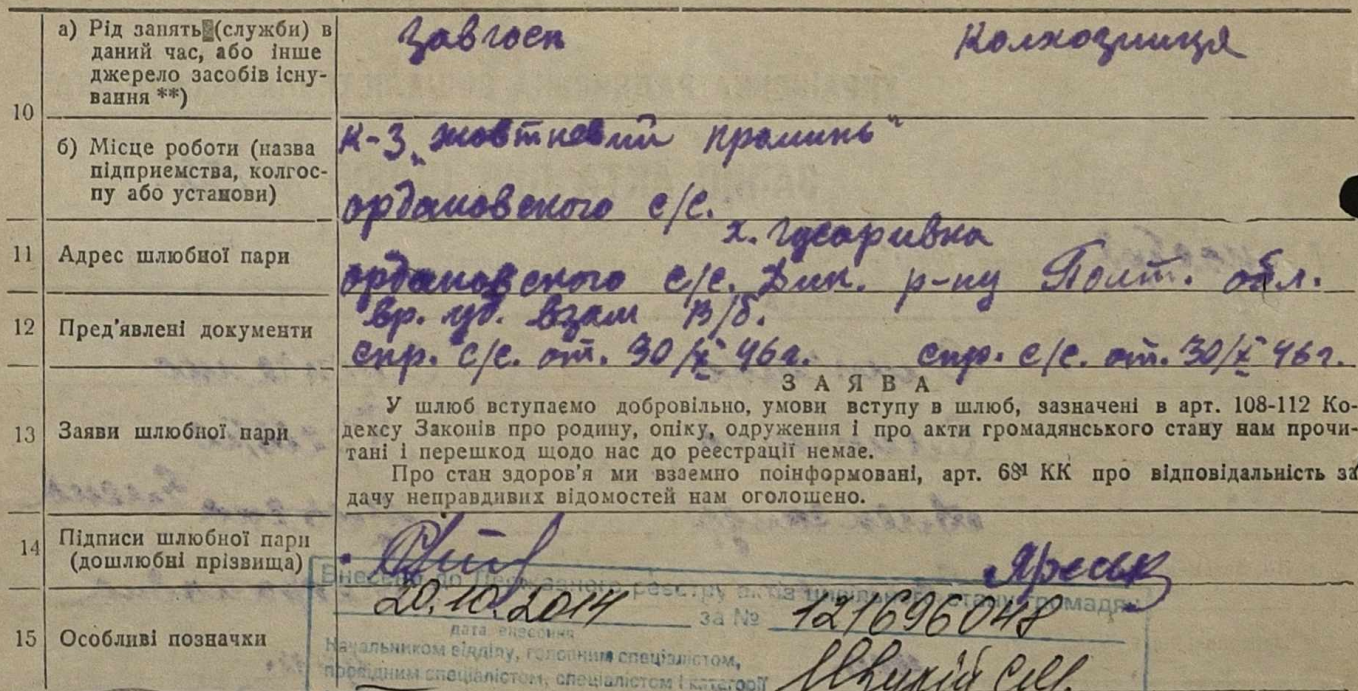 10
а) Рід занять (служби) в
даний час, або інше
джерело засобів існу-
вання **)
Завгосп Колхозниця
б) Місце роботи (назва
підприємства, колгос-
пу або установи)
к-з „жовтневий проминь"
ордановского с/с.
11 Адрес шлюбної пари
х. гусаривка
ордановского с/с. Дик. р-ну Полт. обл.
12 Пред'явлені документи
вр. уд. взам В/б.
спр. с/с. от. 30/X 46г. спр. с/с. от. 30/X 46г.
ЗАЯВА
13 Заяви шлюбної пари
У шлюб вступаємо добровільно, умови вступу в шлюб, зазначені в арт. 108-112 Ко-
дексу Законів про родину, опіку, одруження і про акти громадянського стану нам прочи-
тані і перешкод щодо нас до реєстрації немає.
Про стан здоров'я ми взаємно поінформовані, арт. 68¹ КК про відповідальність за
дачу неправдивих відомостей нам оголошено.
14 Підписи шлюбної пари
(дошлюбні прізвища)
Внесено до Державного реєстру актів цивільного стану громадян
20.10.2014 за № 121696048
дата внесення
15 Особливі позначки
Начальником відділу, головним спеціалістом,
провідним спеціалістом, спеціалістом I категорії